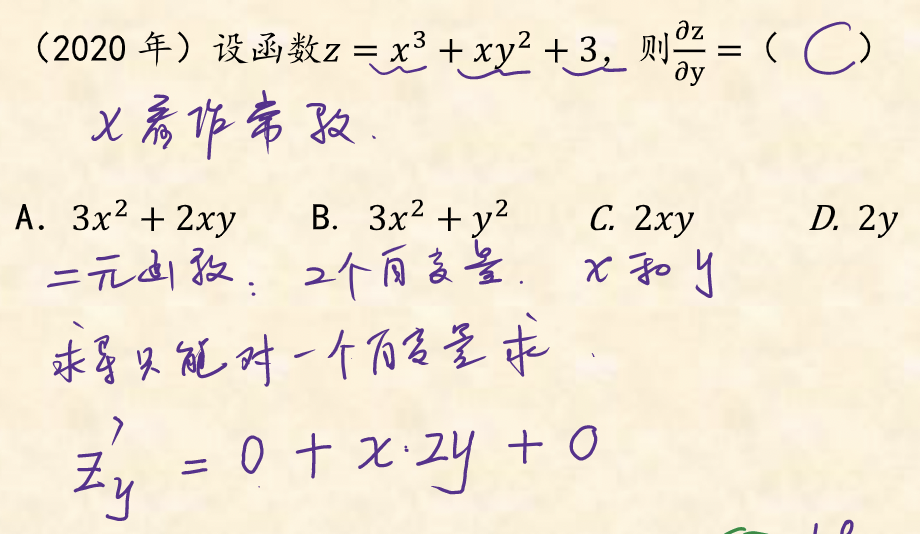 （2020 年）设函数z = x³ + xy² + 3，则∂z/∂y = （ C ）
x 看作常数.
A. 3x² + 2xy B. 3x² + y² C. 2xy D. 2y
二元函数: 2个自变量. x 和 y
求导只能对一个自变量求.
z'y = 0 + x·2y + 0